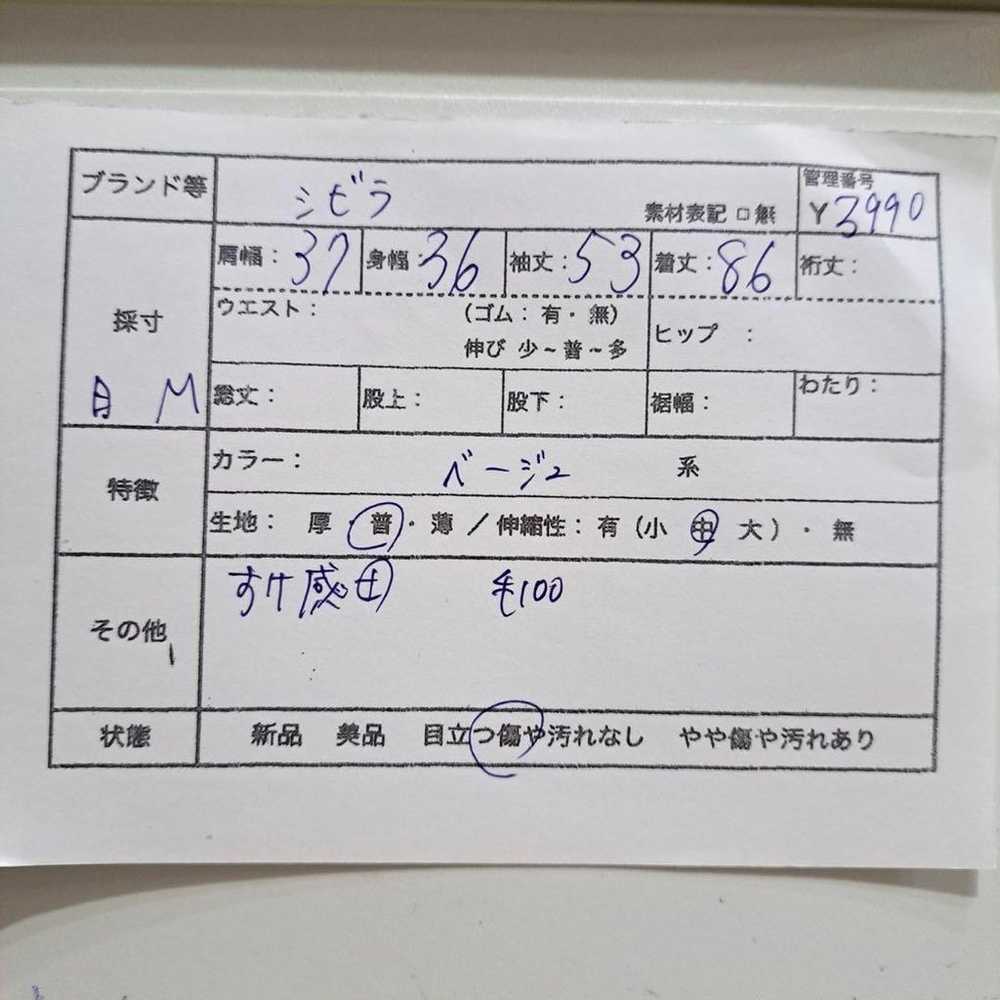 ブランド等 シビラ 素材表記 □ 無 管理番号 Y3990
肩幅：37 身幅：36 袖丈：53 着丈：86 裄丈：
採寸 ウエスト： （ゴム：有・無） ヒップ ：
伸び 少～普～多
日 M 総丈： 股上： 股下： 裾幅： わたり：
特徴 カラー： ベージュ 系
生地： 厚・普・薄 / 伸縮性：有（小 中 大）・無
その他 すけ感 毛100
状態 新品 美品 目立つ傷や汚れなし やや傷や汚れあり